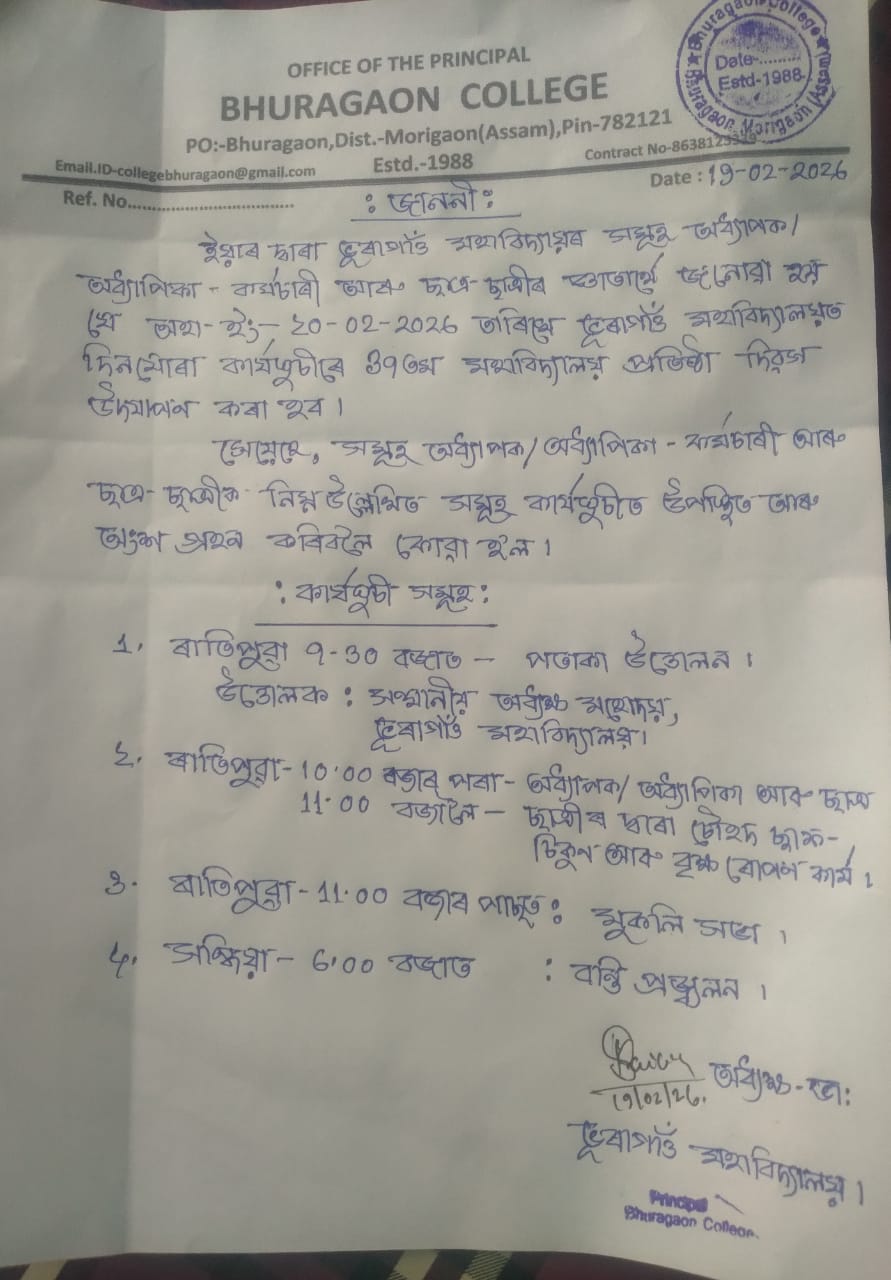 Bhuragaon College
Date-..........
Estd-1988
Bhuragaon, Morigaon (Assam)
OFFICE OF THE PRINCIPAL
BHURAGAON COLLEGE
PO:-Bhuragaon,Dist.-Morigaon(Assam),Pin-782121
Estd.-1988
Email.ID-collegebhuragaon@gmail.com
Contract No-8638123
Ref. No.................................
Date : 19-02-2026
: জাননী :
ইয়াৰ দ্বাৰা ভূৰাগাঁও মহাবিদ্যালয়ৰ সমূহ অধ্যাপক/
অধ্যাপিকা - কৰ্মচাৰী আৰু ছাত্ৰ-ছাত্ৰীৰ জ্ঞাতাৰ্থে জনোৱা হয়
যে অহা- ইং- ২০-02-2026 তাৰিখে ভূৰাগাঁও মহাবিদ্যালয়ত
দিনযোৰা কাৰ্যসূচীৰে 39তম মহাবিদ্যালয় প্ৰতিষ্ঠা দিৱস
উদযাপন কৰা হব।
সেয়েহে, সমূহ অধ্যাপক/অধ্যাপিকা - কৰ্মচাৰী আৰু
ছাত্ৰ- ছাত্ৰীকে নিম্ন উল্লেখিত সমূহ কাৰ্যসূচীত উপস্থিত আৰু
অংশ গ্ৰহন কৰিবলৈ কোৱা হ'ল।
: কাৰ্যসূচী সমূহ :
1. ৰাতিপুৱা 9-30 বজাত - পতাকা উত্তোলন।
উত্তোলক : সন্মানীয় অধ্যক্ষ মহোদয়,
ভূৰাগাঁও মহাবিদ্যালয়।
২. ৰাতিপুৱা-10:00 বজাৰ পৰা - অধ্যাপক/ অধ্যাপিকা আৰু ছাত্ৰ
11:00 বজালৈ - ছাত্ৰীৰ দ্বাৰা চৌহদ ছাফ-
চিকুন আৰু বৃক্ষ ৰোপণ কাৰ্য।
৩. ৰাতিপুৱা-11.00 বজাৰ পাছত : মুকলি সভা।
৪. সন্ধিয়া - 6.00 বজাত : বন্তি প্ৰজ্জ্বলন।
19/02/26.
অধ্যক্ষ
ভূৰাগাঁও মহাবিদ্যালয়।
Principal
Bhuragaon College.